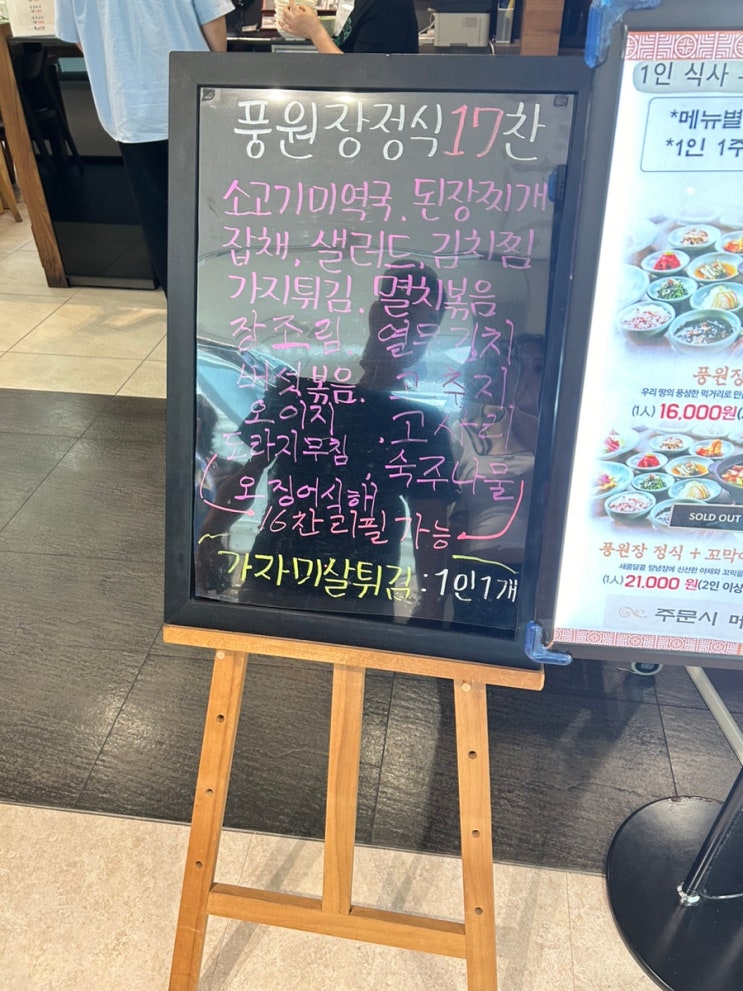 풍원장정식17찬
소고기미역국, 된장찌개
잡채, 샐러드, 김치찜
가지튀김, 멸치볶음
장조림, 열무김치
버섯볶음, 고추지
오이지, 고사리
도라지무침, 숙주나물
오징어식해
16찬리필가능
가자미살튀김:1인1개
1인 식사
*메뉴별
*1인 1주
풍원장
우리 땅의 풍성한 먹거리로 만
(1人) 16,000원
SOLD OUT
풍원장 정식 + 꼬막
새콤달콤 양념장에 신선한 야채와 꼬막을
(1人) 21,000 원(2인 이상
주문시 메